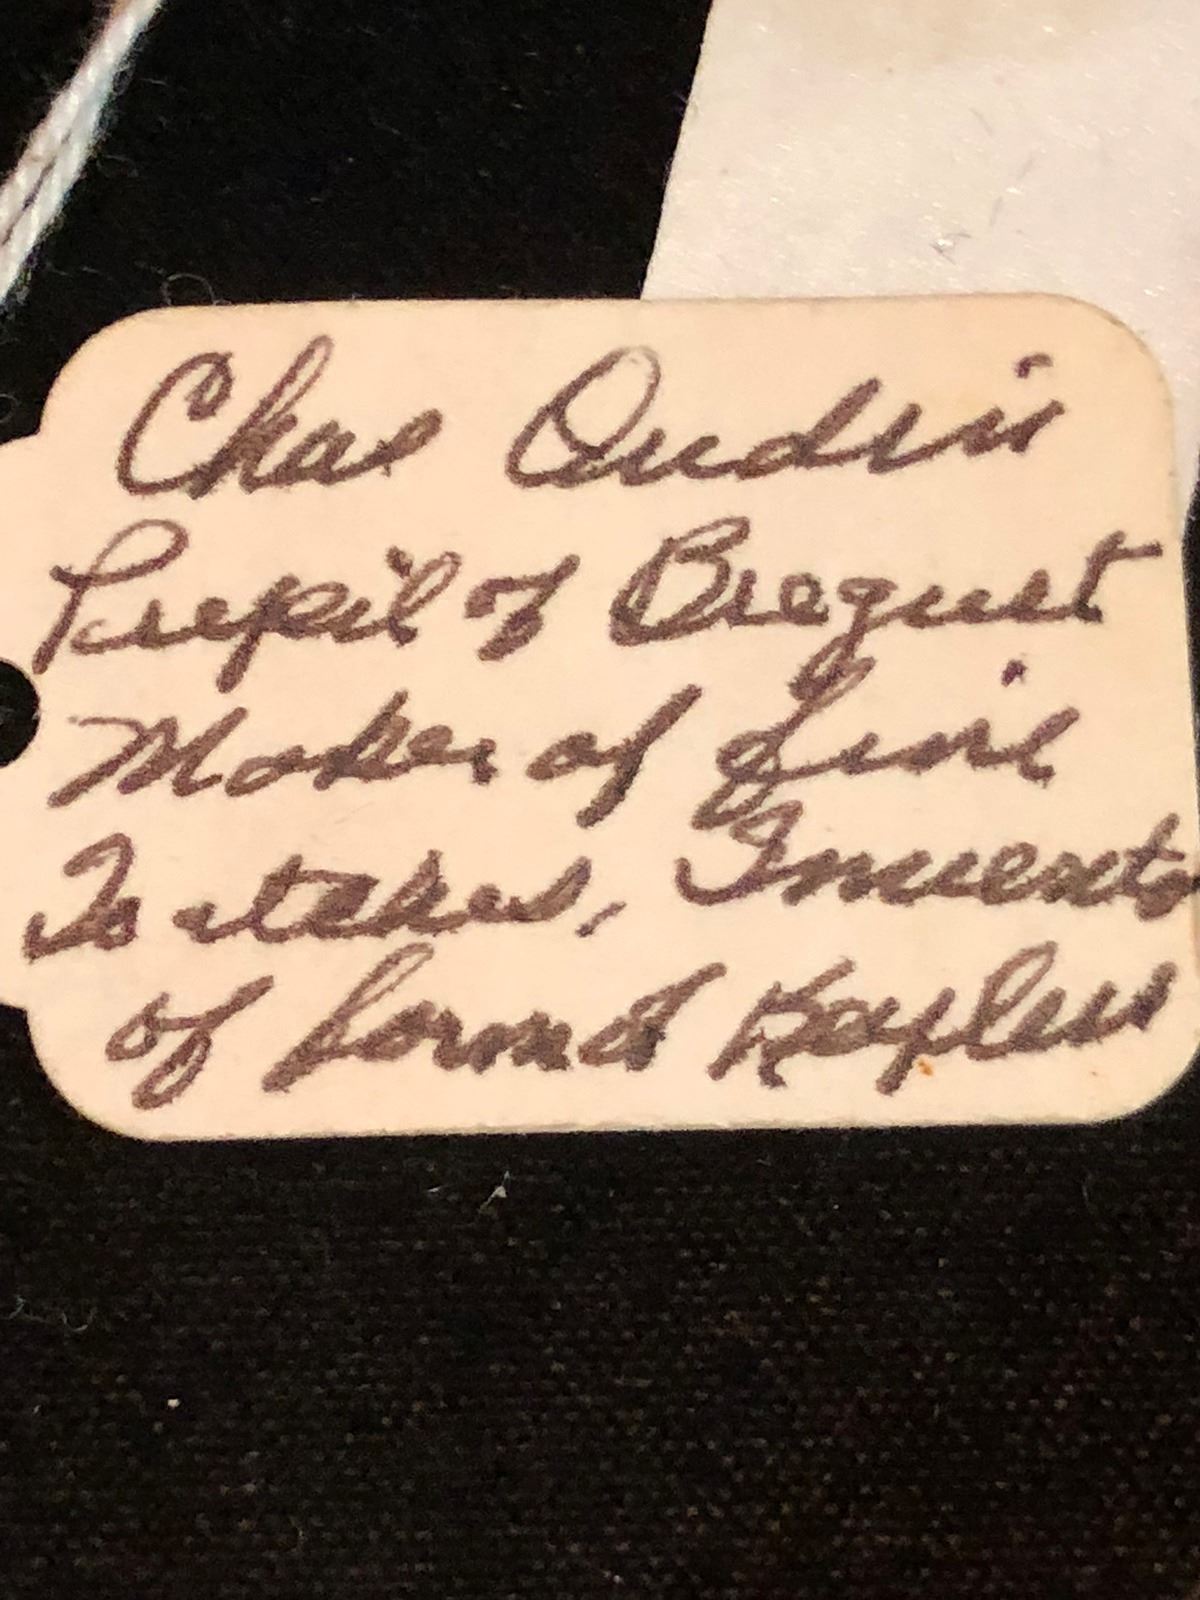 Chas Oudin
Pupil of Breguet
Maker of fine
Watches, Inventor
of form of Keyless